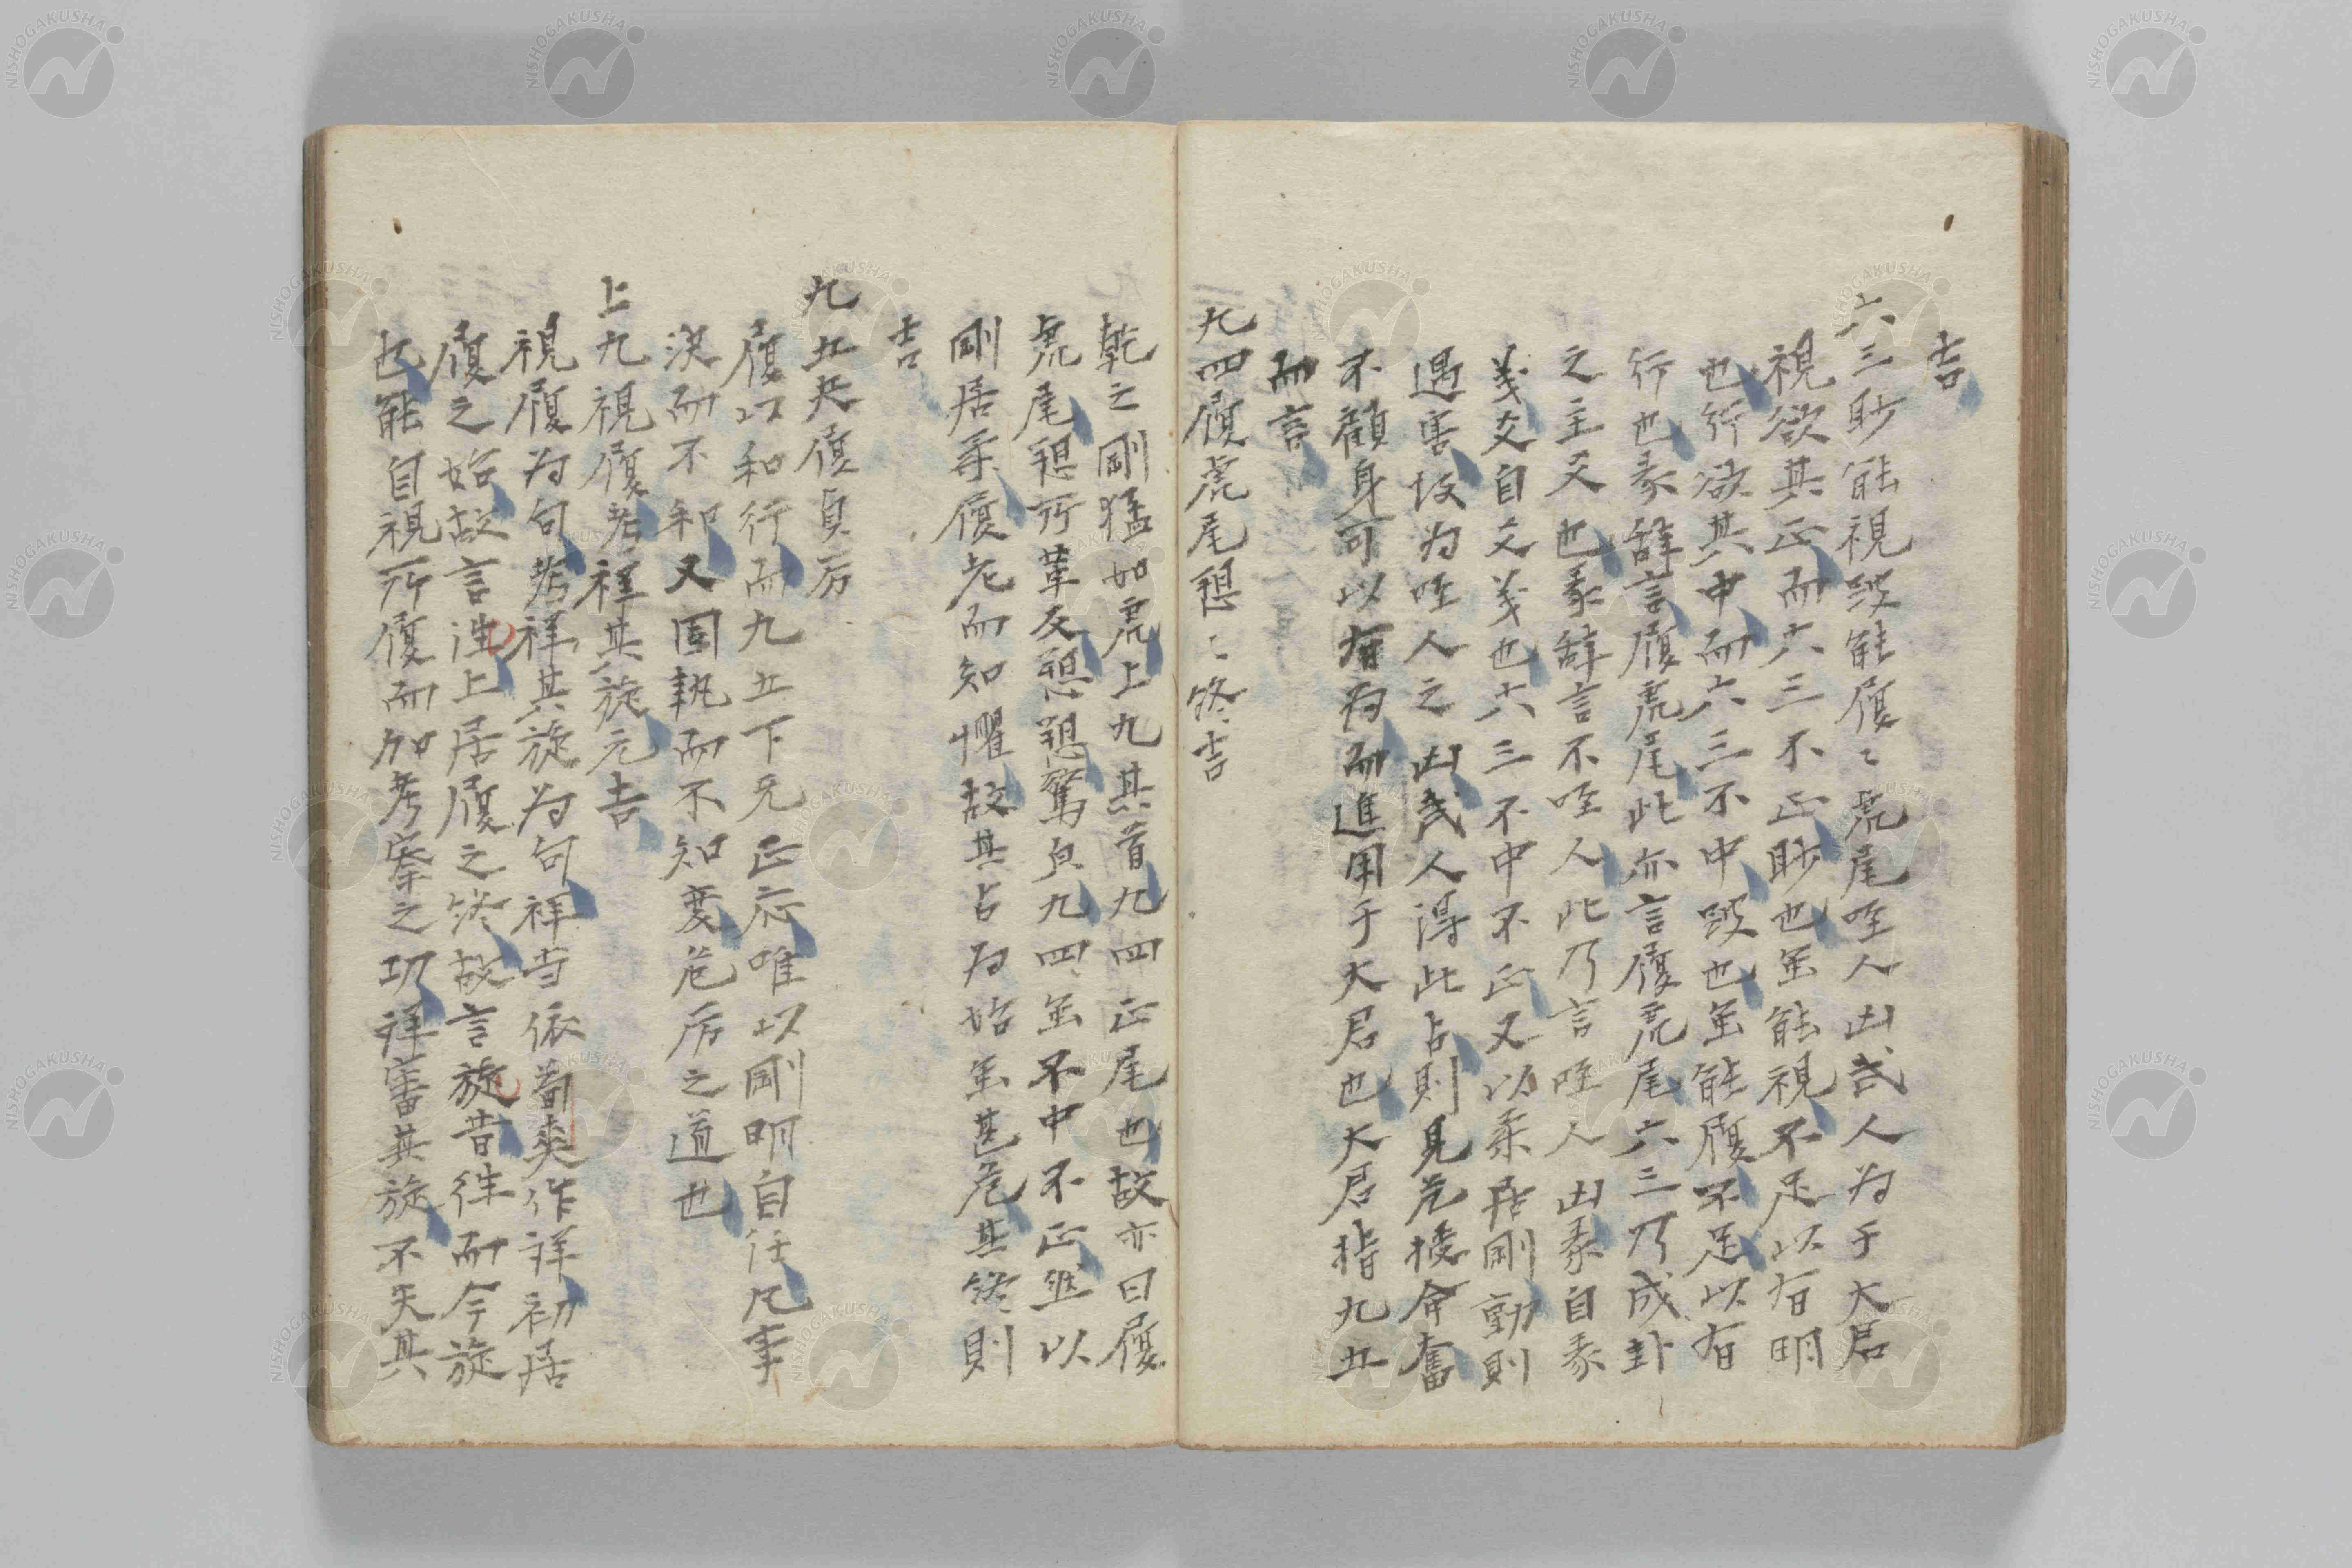 吉
六三眇能視跛能履〻虎尾咥人凶武人為于大君
視欲其正而六三不正眇也虽能視不足以有明
也行欲其中而六三不中跛也虽能履不足以有
行也彖辞言履虎尾此亦言履虎尾六三乃成卦
之主爻也彖辞言不咥人此乃言咥人凶彖自彖
义爻自爻义也六三不中不正又以柔居剛動則
遇害故为咥人之凶武人得此占則見危授命奮
不顧身可以有為而進用于大君也大君指九五
而言
九四履虎尾愬〻终吉
乾之剛猛如虎上九其首九四正尾也故亦曰履
虎尾愬所革反愬愬驚皃九四虽不中不正然以
剛居柔履危而知懼故其占为始虽甚危其终則
吉
九五夬履貞厉
履以和行而九五下无正应唯以剛明自任凡事
决而不和又固執而不知变危厉之道也
上九視履考祥其旋元吉
視履为句考祥其旋为句祥当依荀爽作詳初居
履之始故言往上居履之终故言旋昔往而今旋
也能自視所履而加考察之功詳審其旋不失其
NISHOGAKUSHA